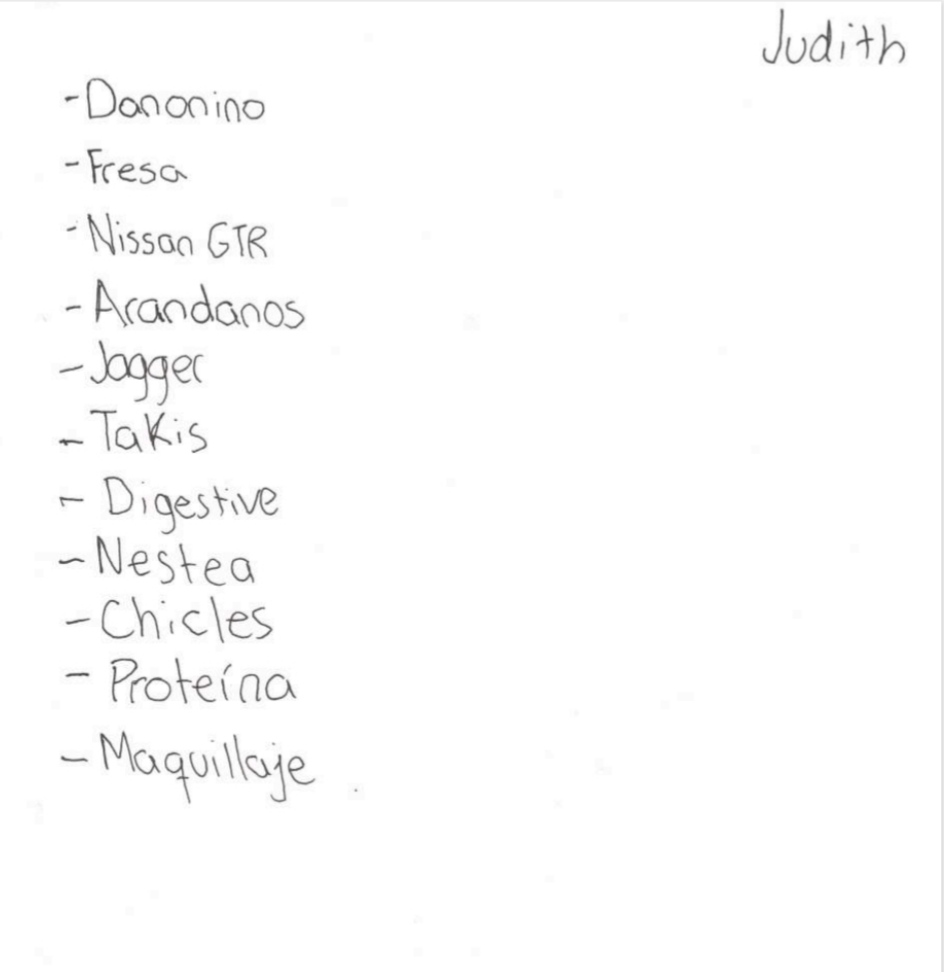 Judith
-Danonino
-Fresa
-Nissan GTR
-Arandanos
-Jagger
-Takis
- Digestive
-Nestea
-Chicles
- Proteína
-Maquillaje